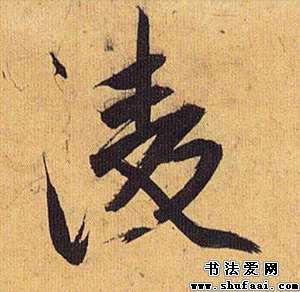 淩
书法爱网
www.shufaai.com